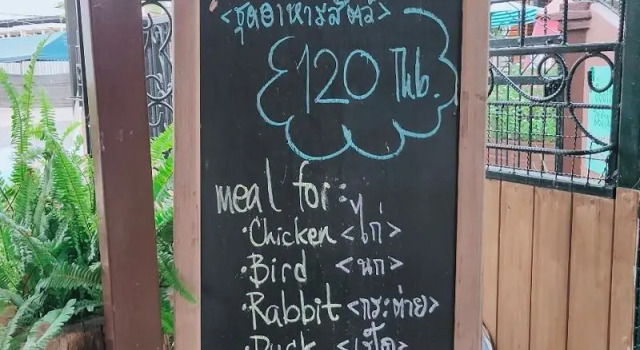 <ชุดอาหารสัตว์>
120 THB.
meal for:
·Chicken <ไก่>
·Bird <นก>
·Rabbit <กระต่าย>
·Duck <เป็ด>